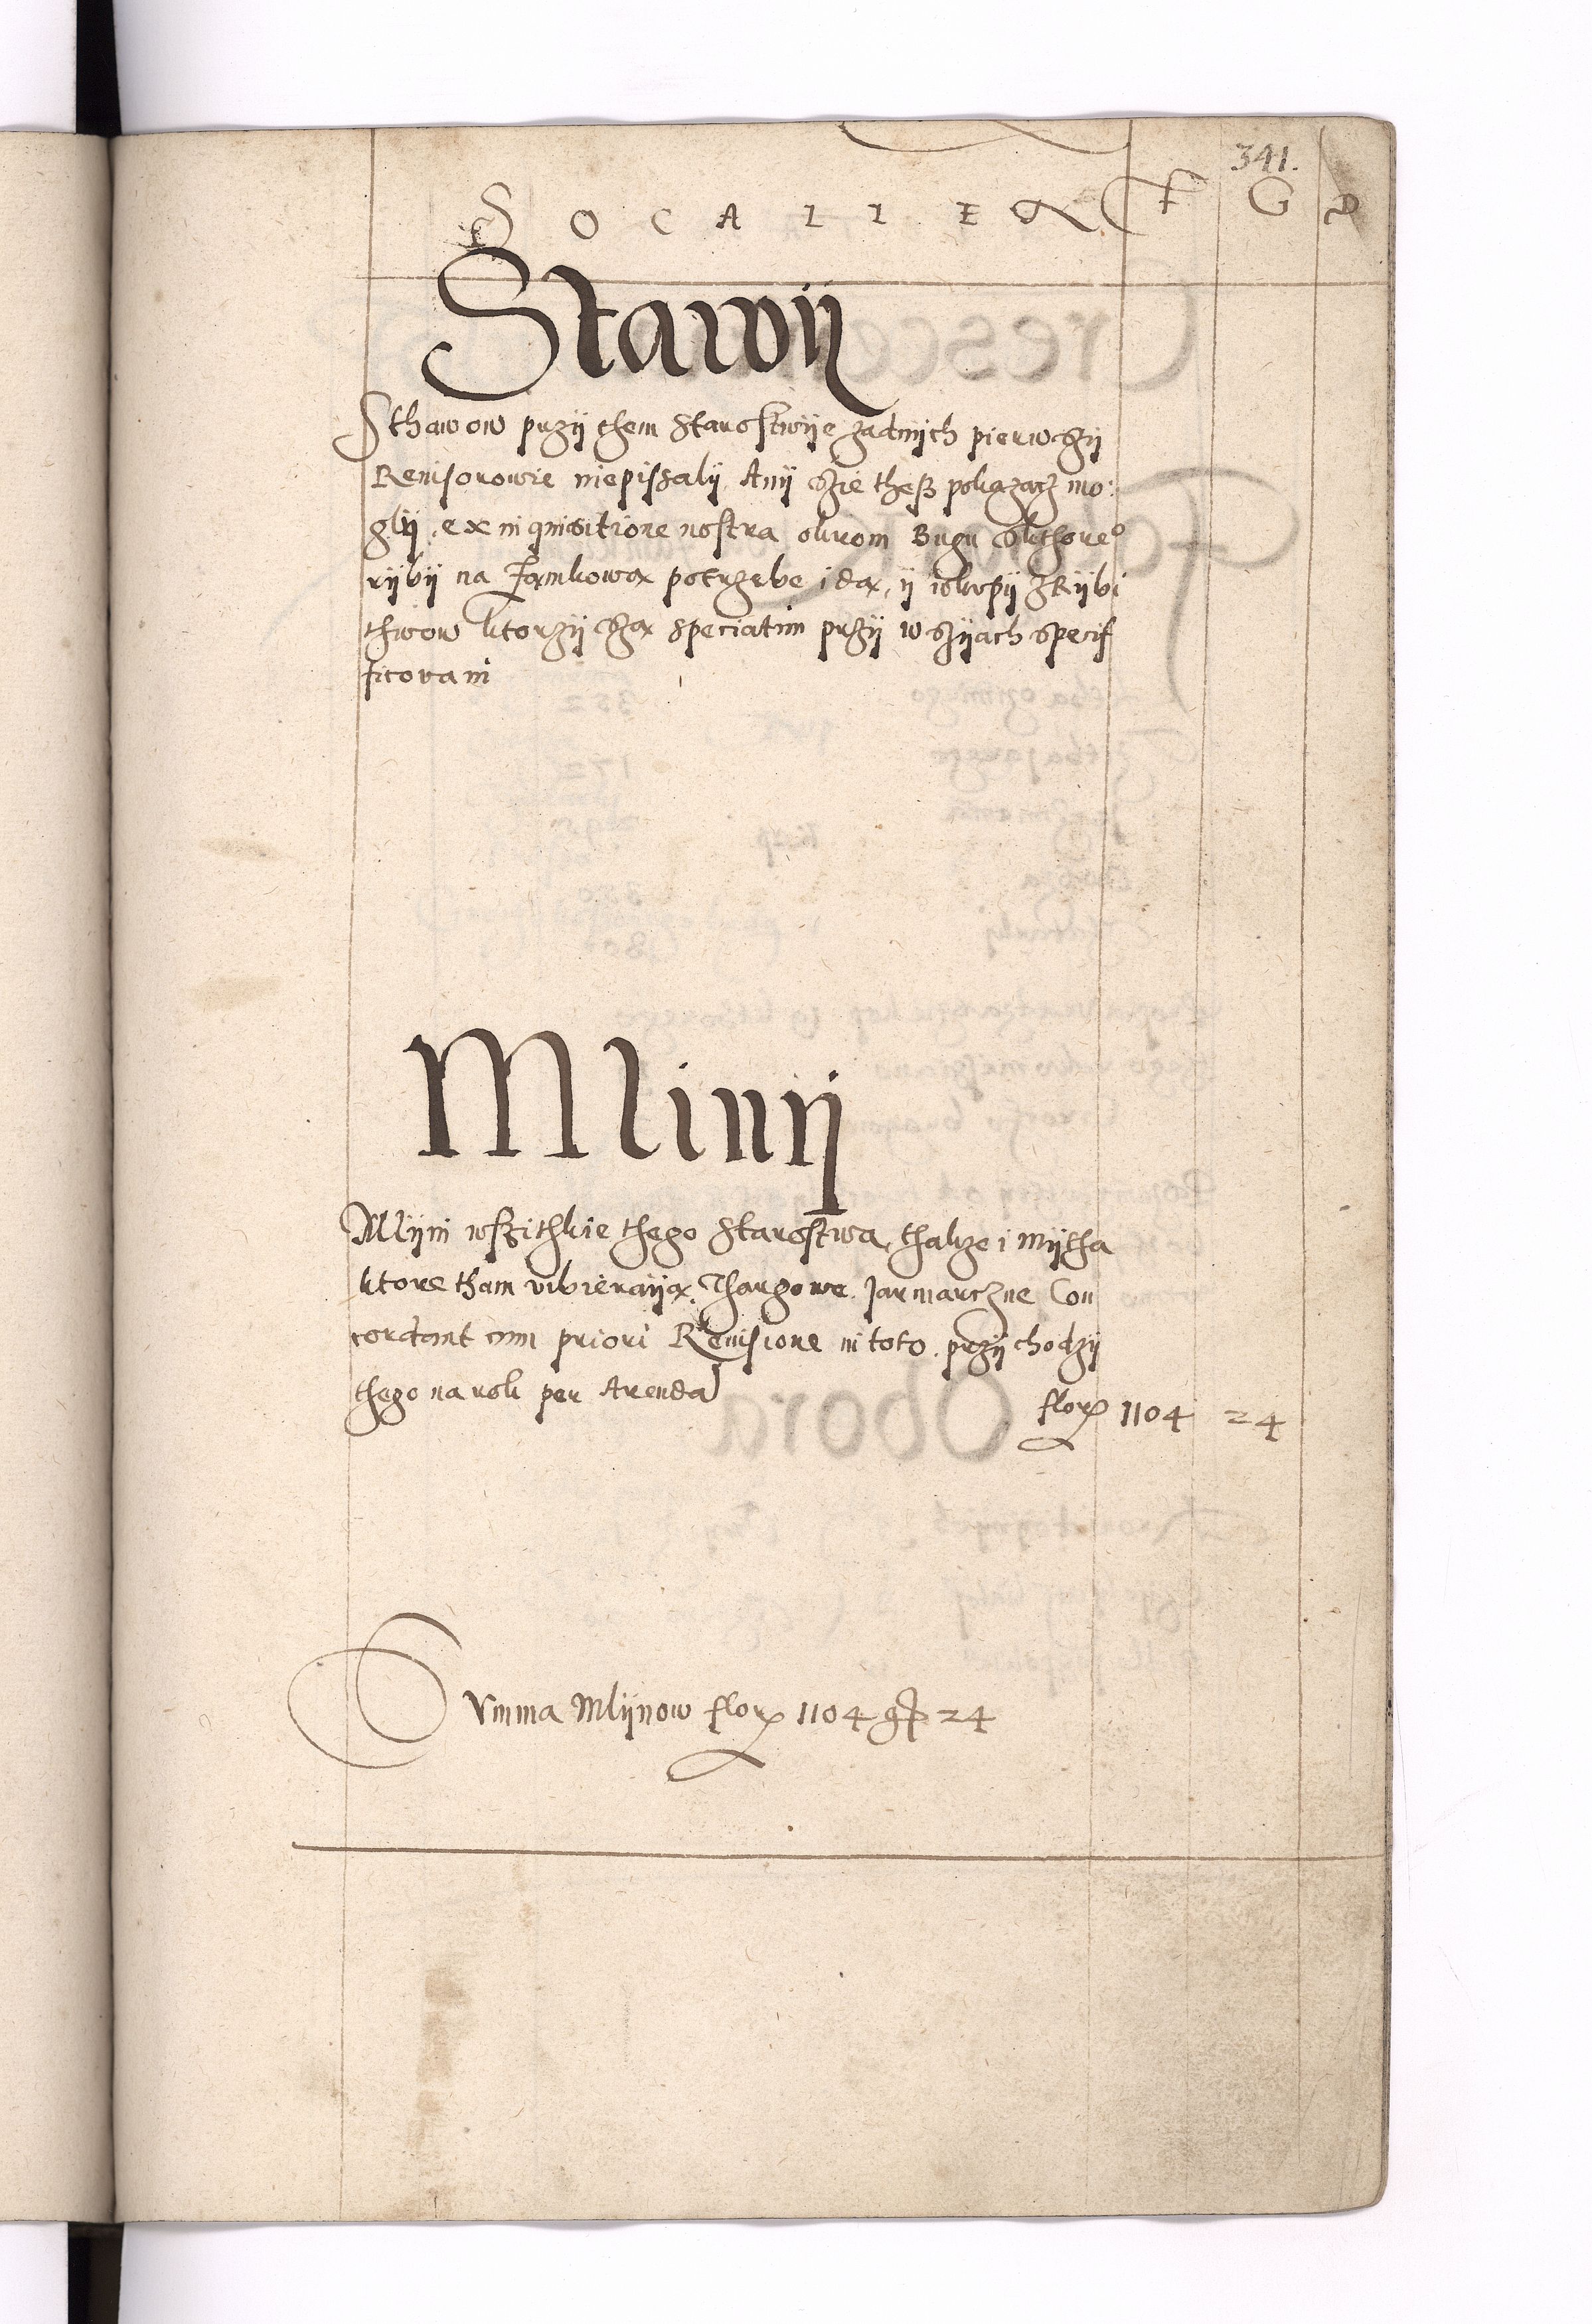 341.
SOCALIEN F G D
Stawÿ
Sthawow przÿ them starostwÿe zadnÿch pierwszÿ
Reuisorowie niepissalÿ Anÿ szie thesz pokazacz mo:
glÿ, ex inquisitione nostra okrom Bugu skthoreo
rÿbÿ na Zamkowa potrzebe ida, ÿ
thwow ktorzÿ sza speciatim przÿ wszÿach specif
ficovani
Mlinÿ
Mlÿni wszithkie thego starostwa, thakze i mÿtha
ktore tham vibieraÿa, Thargowe Jarmarczne Con
cordant cum priori Reuisione in toto. przÿchodzÿ
thego na rok per Arenda
flor 1104 24
Summa Mlÿnow flor 1104 gr 24